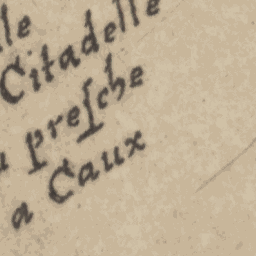 lle
Citadelle
preſche
a Caux